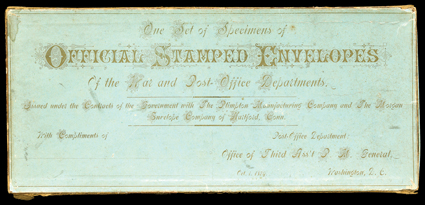 One Set of Specimens of
OFFICIAL STAMPED ENVELOPES
Of the War and Post-Office Departments,
Issued under the Contracts of the Government with The Plimpton Manufacturing Company and The Morgan
Envelope Company of Hartford, Conn.
With Compliments of Post-Office Department
Office of Third Ass't P. M. General,
Washington, D. C.